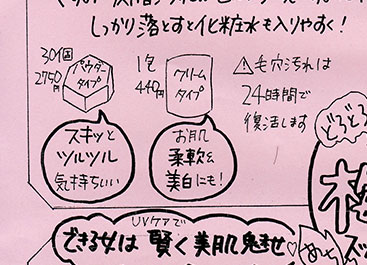 しっかり落とすと化粧水も入りやすく!
30個
2750円
パウダー
タイプ
1包
440円
クリーム
タイプ
⚠毛穴汚れは
24時間で
復活します
スキッと
ツルツル
気持ちいい
お肌
柔軟&
美白にも!
どろどろ
UVケアで
できる女は 賢く美肌魅せ♡